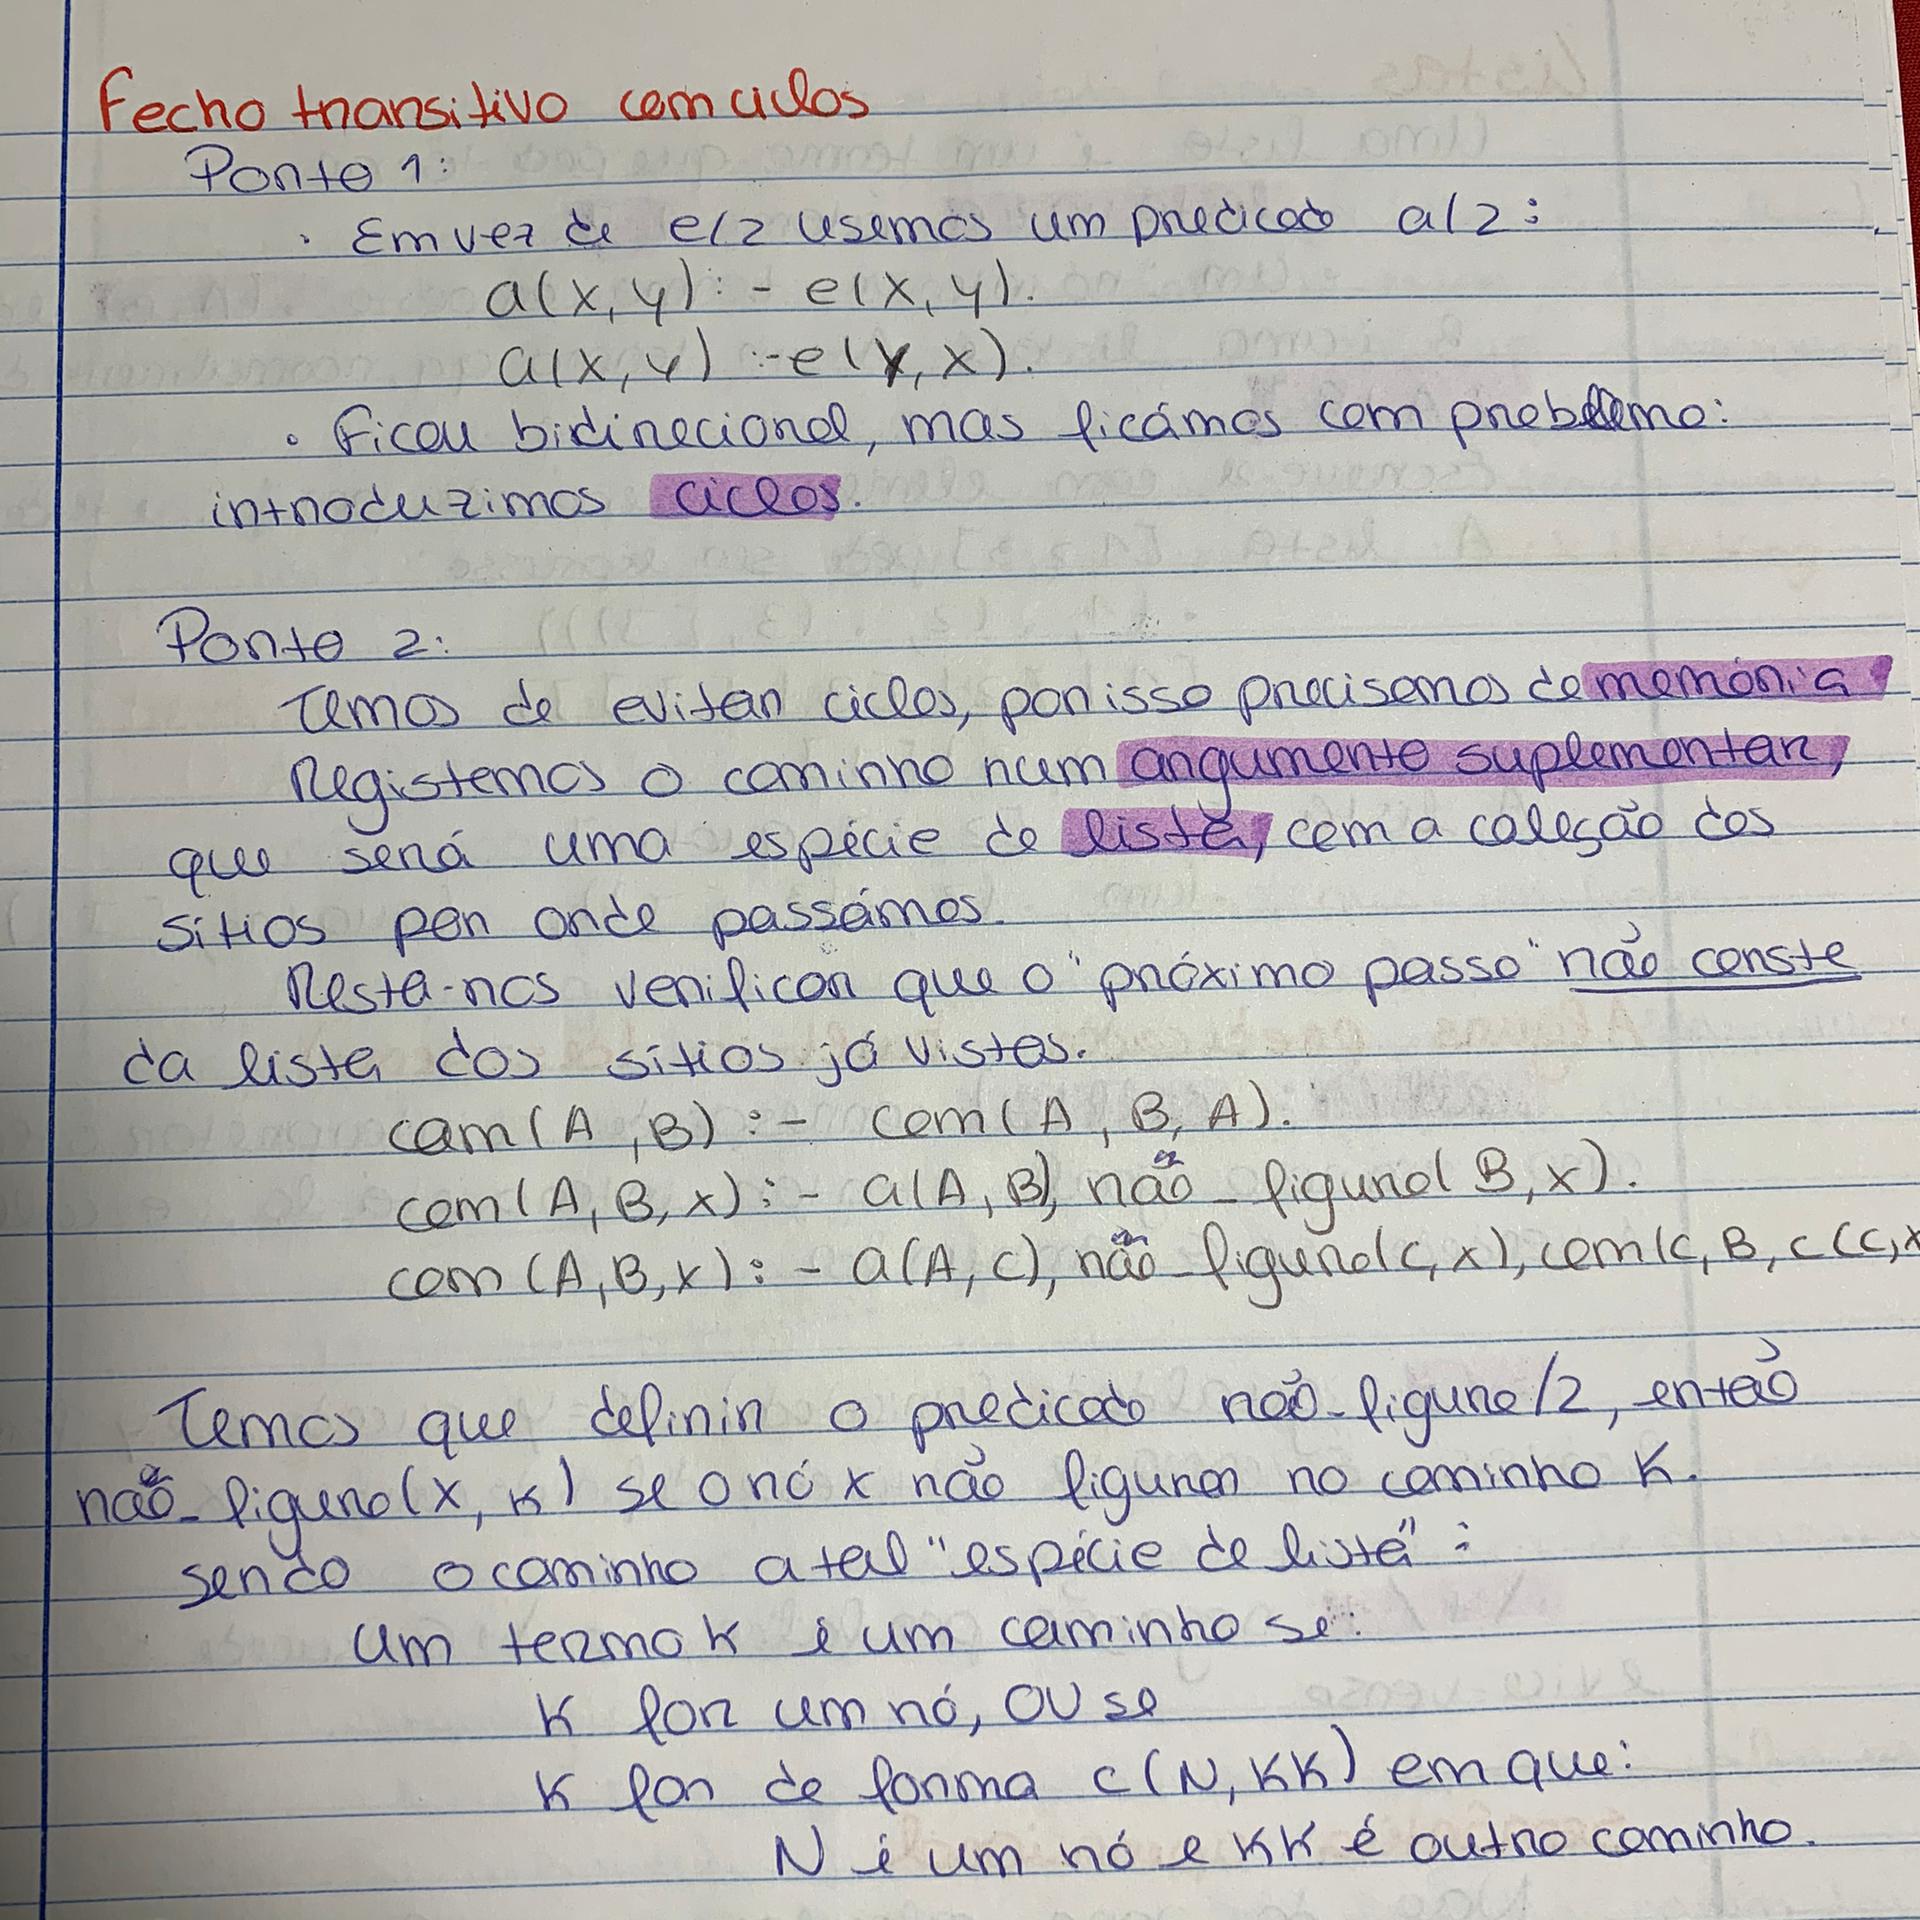 Fecho transitivo com ciclos
Ponto 1:
• Em vez de e/2 usemos um predicado a/2:
a(X,Y) :- e(X,Y).
a(X,Y) :- e(Y,X).
• Ficou bidirecional, mas ficámos com problema:
introduzimos ciclos.
Ponto 2:
Temos de evitar ciclos, por isso precisamos de memória
Registemos o caminho num argumento suplementar,
que será uma espécie de lista, com a coleção dos
sítios por onde passámos.
Resta-nos verificar que o "próximo passo" não conste
da lista dos sítios já vistos.
cam(A,B) :- cam(A, B, A).
cam(A,B,X) :- a(A,B), não_figura(B,X).
cam(A,B,X) :- a(A,C), não_figura(C,X), cam(C, B, c(C,X
Temos que definir o predicado não_figura/2, então
não_figura(X, K) se o nó X não figurar no caminho K.
sendo o caminho a tal "espécie de lista":
Um termo K é um caminho se:
K for um nó, OU se
K for de forma c(N,KK) em que:
N é um nó e KK é outro caminho.